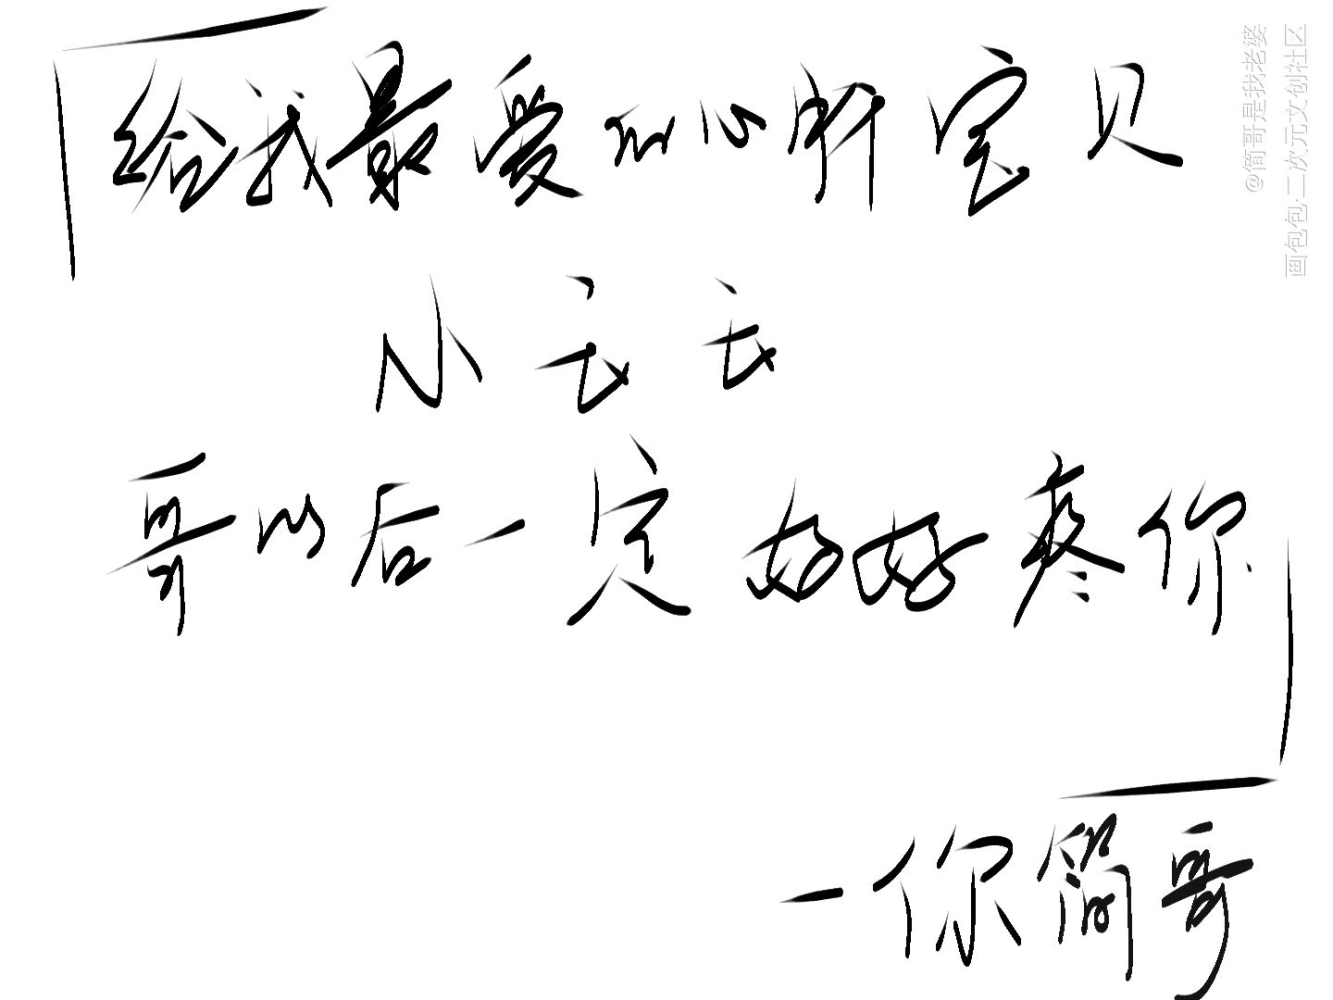 给我最爱的心轩宝贝
小长长
哥以后一定好好疼你
一你简哥
@简哥是我老婆
画包包·二次元文创社区